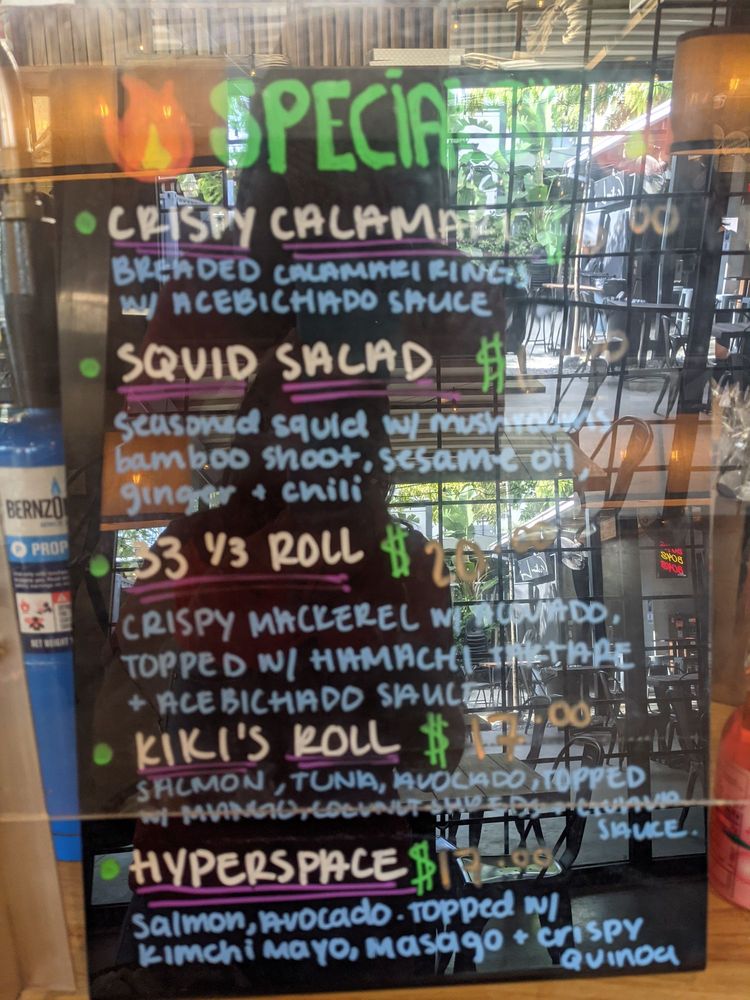 SPECIALS
CRISPY CALAMARI 00
BREADED CALAMARI RINGS
W/ ACEBICHADO SAUCE
SQUID SALAD $
Seasoned squid w/ mushrooms
bamboo shoot, sesame oil,
ginger + chili
33 1/3 ROLL $ 20.00
CRISPY MACKEREL W/ AVOCADO.
TOPPED W/ HAMACHI TARTARE
+ ACEBICHADO SAUCE
KIKI'S ROLL $17.00
SALMON, TUNA, AVOCADO, TOPPED
W/ MANGO, COCONUT SHREDS + GUAVA
SAUCE.
HYPERSPACE $17.00
Salmon, Avocado. Topped w/
Kimchi Mayo, Masago + crispy
Quinoa
BERNZO
PROP
NET WEIGHT